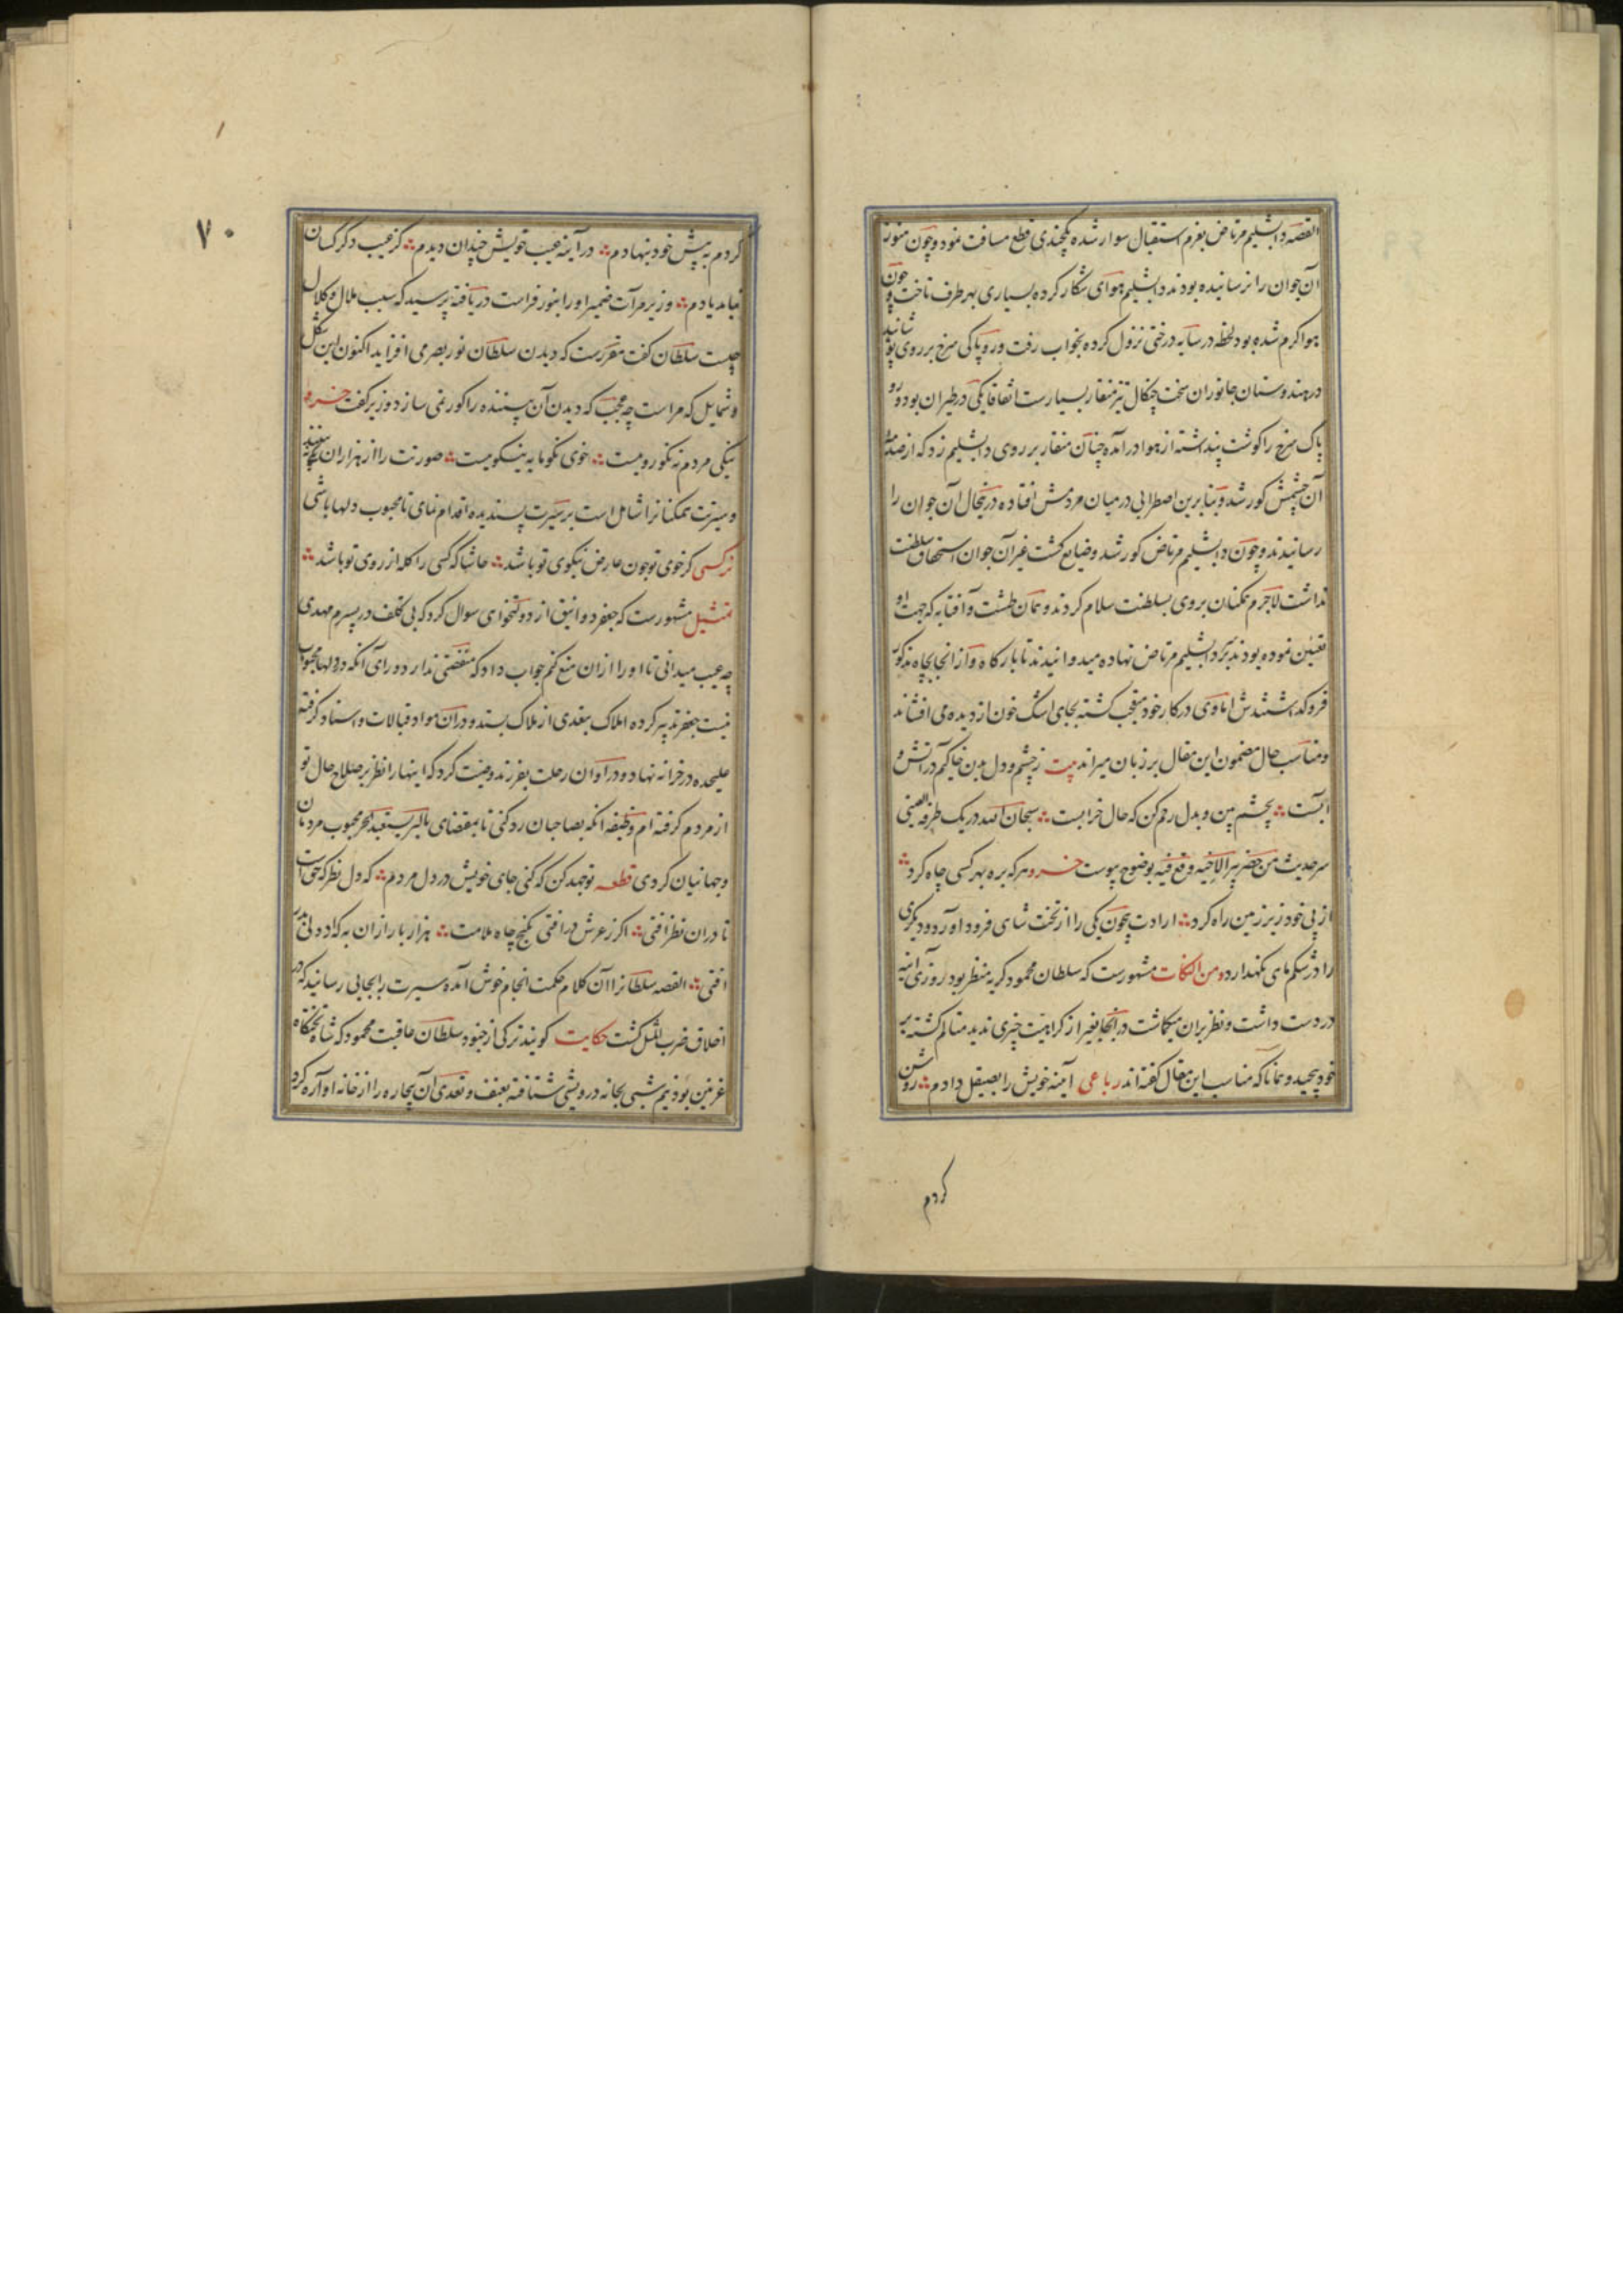 القصه دابشلیم مرتاض بعزم استقبال سوار شده یکچندی قطع مسافت نمود و چون هنوز
آن جوان را نرسانیده بودند دابشلیم هوای شکار کرده بسیاری بهر طرف تاخت و چون
هوا گرم شده بود لحظه در سایه درختی نزول کرده بخواب رفت و روپاکی سرخ بر روی پوشانید
در هندوستان جانوران سخت چنگال تیز منقار بسیارست اتفاقا یکی در طیران بود و رو
پاک سرخ را گوشت پنداشته از هوا درآمده چنان منقار بر روی دابشلیم زد که از صدمه
آن چشمش کور شد و بنابرین اضطرابی در میان مردمش افتاده درینحال آن جوان را
رسانیدند و چون دابشلیم مرتاض کور شد و ضایع گشت غیر آن جوان استحقاق سلطنت
نداشت لاجرم همکنان بروی بسلطنت سلام کردند و همان طشت و آفتابه که جهت او
تعیین نموده بودند بر سر دابشلیم مرتاض نهاده میدوانیدند تا بارگاه و از آنجا بچاه مذکور
فرو گذاشتندش اما وی در کار خود متعجب گشته بجای اشک خون از دیده می افشاند
و مناسب حال مضمون این مقال بر زبان میراند بیت ز چشم و دل بدن خاکیم در آتش و
آبست ؞ بچشم بین و بدل رحم کن که حال خرابست ؞ سبحان الله در یک طرفة العینی
سر حدیث من حفر بیرا لاخیه وقع فیه بوضوح پیوست خسرو هر که بره بهر کسی چاه کرد ؞
از پی خود زیر زمین راه کرد ؞ ارادت بیچون یکی را از تخت شاهی فرود آورد و دیگری
را در شکم ماهی نگهدارد و من النکات مشهورست که سلطان محمود کریه منظر بود روزی آینه
در دست داشت و نظر بران میگماشت در آنجا بغیر از کراهیت چیزی ندید متالم گشته بر
خود پیچید و همانا که مناسب این مقال گفته اند رباعی آینه خویش را بصیقل دادم ؞ روشن
کردم
۷۰
کردم به پیش خود بنهادم ؞ در آینه عیب خویش چندان دیدم ؞ کز عیب دگر کسان
نیامد یادم ؞ وزیر مرآت ضمیر او را بنور فراست دریافته پرسید که سبب ملال و کلال
چیست سلطان گفت مقررست که دیدن سلطان نور بصر می افزاید اکنون این شکل
و شمایل که مراست چه عجب که دیدن آن بیننده را کور نمی سازد وزیر گفت خسرو
نیکی مردم نه نکورویست ؞ خوی نکو مایه نیکویست ؞ صورتت را از هزاران یکی بینند
و سیرتت همکنانرا شامل است بر سیرت پسندیده اقدام نمای تا محبوب دلها باشی
نرگسی گر خوی تو چون عارض نیکوی تو باشد ؞ حاشا که کسی را گله از روی تو باشد ؞
تمثیل مشهورست که جعفر دوانیق از دولتخواهی سوال کرد که بی تکلف در پسرم مهدی
چه عیب میدانی تا او را ازان منع کنم جواب داد که منقصتی ندارد ورای آنکه در دلها محبوب
نیست جعفر تدبیر کرده املاک بنقدی از ملاک بستد و دران مواد قبالات و اسناد گرفته
علیحده در خزانه نهاده در آوان رحلت بفرزند وصیت کرد که اینها را نظر بر صلاح حال تو
از مردم گرفته ام وظیفه آنکه بصاحبان رد کنی تا بمقتضای بالبر یستعبد الحر محبوب مردمان
و جهانیان گردی قطعه تو جهد کن که کنی جای خویش در دل مردم ؞ که دل نظرگه حق است
تا دران نظر افتی ؞ اگر ز عرش درافتی بکنج چاه ملامت ؞ هزار بار ازان به که از دلی بدر
افتی ؞ القصه سلطانرا آن کلام حکمت انجام خوش آمده سیرت را بجایی رسانید که در
اخلاق ضرب المثل گشت حکایت گویند ترکی از جنود سلطان عاقبت محمود که شاه تختگاه
غزنین بود نیم شبی بخانه درویشی شتافته بعنف و تعدی آن بیچاره را از خانه آواره کرد